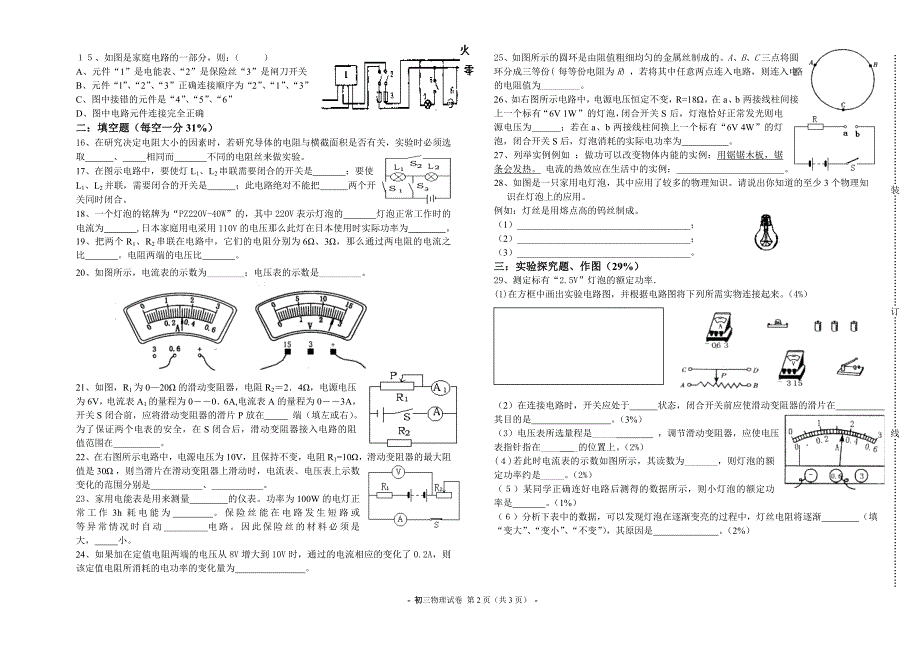 １５、如图是家庭电路的一部分，则：（　　）
A、元件“1”是电能表、“2”是保险丝“3”是闸刀开关
B、元件“1”、“2”、“3” 正确连接顺序为“2”、“1”、“3”
C、图中接错的元件是“4”、“5”、“6”
D、图中电路元件连接完全正确
火
零
1
二：填空题（每空一分31%）
16、在研究决定电阻大小的因素时，若研究导体的电阻与横截面积是否有关，实验时必须选
取______、______相同而______不同的电阻丝来做实验。
17、在图示电路中，要使灯L₁、L₂串联需要闭合的开关是______；要使
L₁、L₂并联，需要闭合的开关是______；此电路绝对不能把______两个开
关同时闭合。
L₁ S₂ L₂
S₁ S₃
18、一个灯泡的铭牌为“PZ220V-40W”的，其中220V表示灯泡的______灯泡正常工作时的
电流为______,日本家庭用电采用110V的电压那么此灯在日本使用时实际功率为________。
19、把两个R₁、R₂串联在电路中，它们的电阻分别为6Ω、3Ω，那么通过两电阻的电流之
比______。电阻两端的电压比______。
20、如图所示，电流表的示数为_______；电压表的示数是________。
0 1 2 3
0 0.2 0.4 0.6
A
3 0.6 +
0 5 10 15
0 1 2 3
V
15 3 +
21、如图，R₁为0—20Ω的滑动变阻器，电阻R₂=2．4Ω，电源电压
为6V，电流表A₁的量程为0－－0．6A,电流表A的量程为0－－3A，
开关S闭合前，应将滑动变阻器的滑片P放在_____ 端（填左或右）。
为了保证两个电表的安全，在S闭合后，滑动变阻器接入电路的阻
值范围在________。
P
R₁ A₁
S A
R₂
22、在右图所示电路中，电源电压为10V，且保持不变，电阻R₁=10Ω，滑动变阻器的最大阻
值是30Ω ，则当滑片在滑动变阻器上滑动时，电流表、电压表上示数
变化的范围分别是__________、__________。
V
R₁ R₂
A S
23、家用电能表是用来测量________的仪表。功率为100W的电灯正
常工作 3h 耗电能为________。保险丝能在电路发生短路或
等异常情况时自动________电路。因此保险丝的材料必须是
大，_____小。
24、如果加在定值电阻两端的电压从8V增大到10V时，通过的电流相应的变化了0.2A，则
该定值电阻所消耗的电功率的变化量为____________。
25、如图所示的圆环是由阻值粗细均匀的金属丝制成的。A、B、C三点将圆
环分成三等份( 每等份电阻为R) ，若将其中任意两点连入电路，则连入电路
的电阻值为________。
A B
C
26、如右图所示电路中，电源电压恒定不变，R=18Ω，在a、b两接线柱间接
上一个标有“6V 1W”的灯泡,闭合开关S后，灯泡恰好正常发光则电
源电压为______；若在a、b两接线柱间换上一个标有“6V 4W”的灯
泡，闭合开关S后，灯泡消耗的实际电功率为________
R a b
S
27、列举实例例如 ：做功可以改变物体内能的实例：用锯锯木板，锯
条会发热。 电流的热效应在生活中的实例：______________________
28、如图是一只家用电灯泡，其中应用了较多的物理知识。请说出你知道的至少3个物理知
识在灯泡上的应用。
例如：灯丝是用熔点高的钨丝制成。
（1）___________________________________；
（2）___________________________________；
（3）___________________________________。
三：实验探究题、作图（29%）
29、测定标有“2.5V”灯泡的额定功率.
(1)在方框中画出实验电路图，并根据电路图将下列所需实物连接起来。(4%)
－0.6 3
C D
P
A B
－3 15
（2）在连接电路时，开关应处于______状态，闭合开关前应使滑动变阻器的滑片在__________
其目的是______________。(3%)
（3）电压表所选量程是____________ ，调节滑动变阻器，应使电压
表指针指在________的位置上。(2%)
(4)若此时电流表的示数如图所示，其读数为_______，则灯泡的额
定功率约是_____。(2%)
0 1 2 3
0 0.2 0.4 0.6
A
－ 0.6 3
（５）某同学正确连好电路后测得的数据所示，则小灯泡的额定功
率是_______。(1%)
（６)分析下表中的数据，可以发现灯泡在逐渐变亮的过程中，灯丝电阻将逐渐________（填
“变大”、“变小”、“不变”)，其原因是______________。(2%)
装
订
线
- 初三物理试卷 第2页（共3页） -